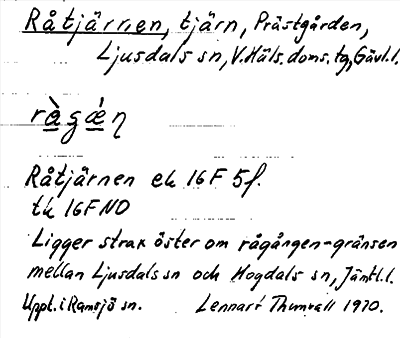 Råtjärnen, tjärn, Prästgården,
Ljusdals sn, V. Häls. doms. tg, Gävl. l.
rå̀gǽn
Råtjärnen ek 16F 5f.
tk 16F NO
Ligger strax öster om rågången-gränsen
mellan Ljusdals sn och Hogdals sn, Jämtl. l.
Uppt. i Ramsjö sn. Lennart 1970.